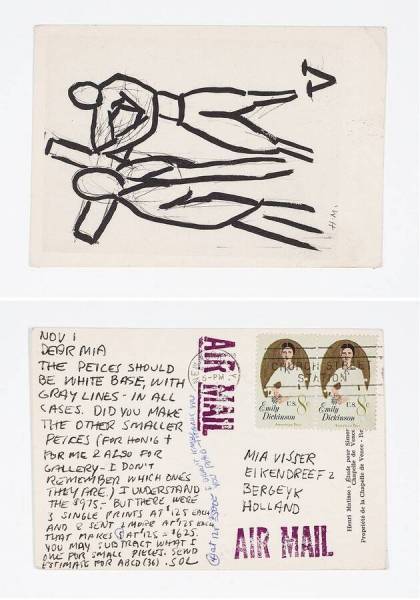 V
H.M.
NOV 1
DEAR MIA
THE PEICES SHOULD
BE WHITE BASE, WITH
GRAY LINES - IN ALL
CASES. DID YOU MAKE
THE OTHER SMALLER
PEICES (FOR HONIG +
FOR ME & ALSO FOR
GALLERY - I DON'T
REMEMBER WHICH ONES
THEY ARE.) I UNDERSTAND
THE $975.- BUT THERE WERE
3 SINGLE PRINTS AT $125 EACH
AND 2 SENT 2 MORE AT $125 EACH
THAT MAKES 5 AT 125 = $625.
YOU MAY SUBTRACT WHAT I
OWE FOR SMALL PIECES. SEND
ESTIMATE FOR ABCD (36). SOL
AIR MAIL
NEW
5-PM
CHURCH STREET
STATION
U.S. 8c
Emily
Dickinson
American Poet
U.S. 8c
Emily
Dickinson
American Poet
MIA VISSER
EIKENDREEF 2
BERGEYK
HOLLAND
AIR MAIL
Henri Matisse : Étude pour
Chapelle de Vence
Propriété de la Chapelle de Vence